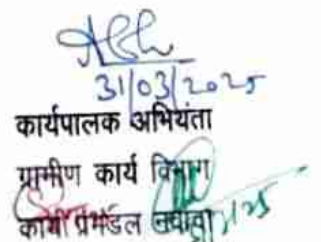 31/03/2025
कार्यपालक अभियंता
ग्रामीण कार्य विभाग
कार्य प्रमंडल नवादा